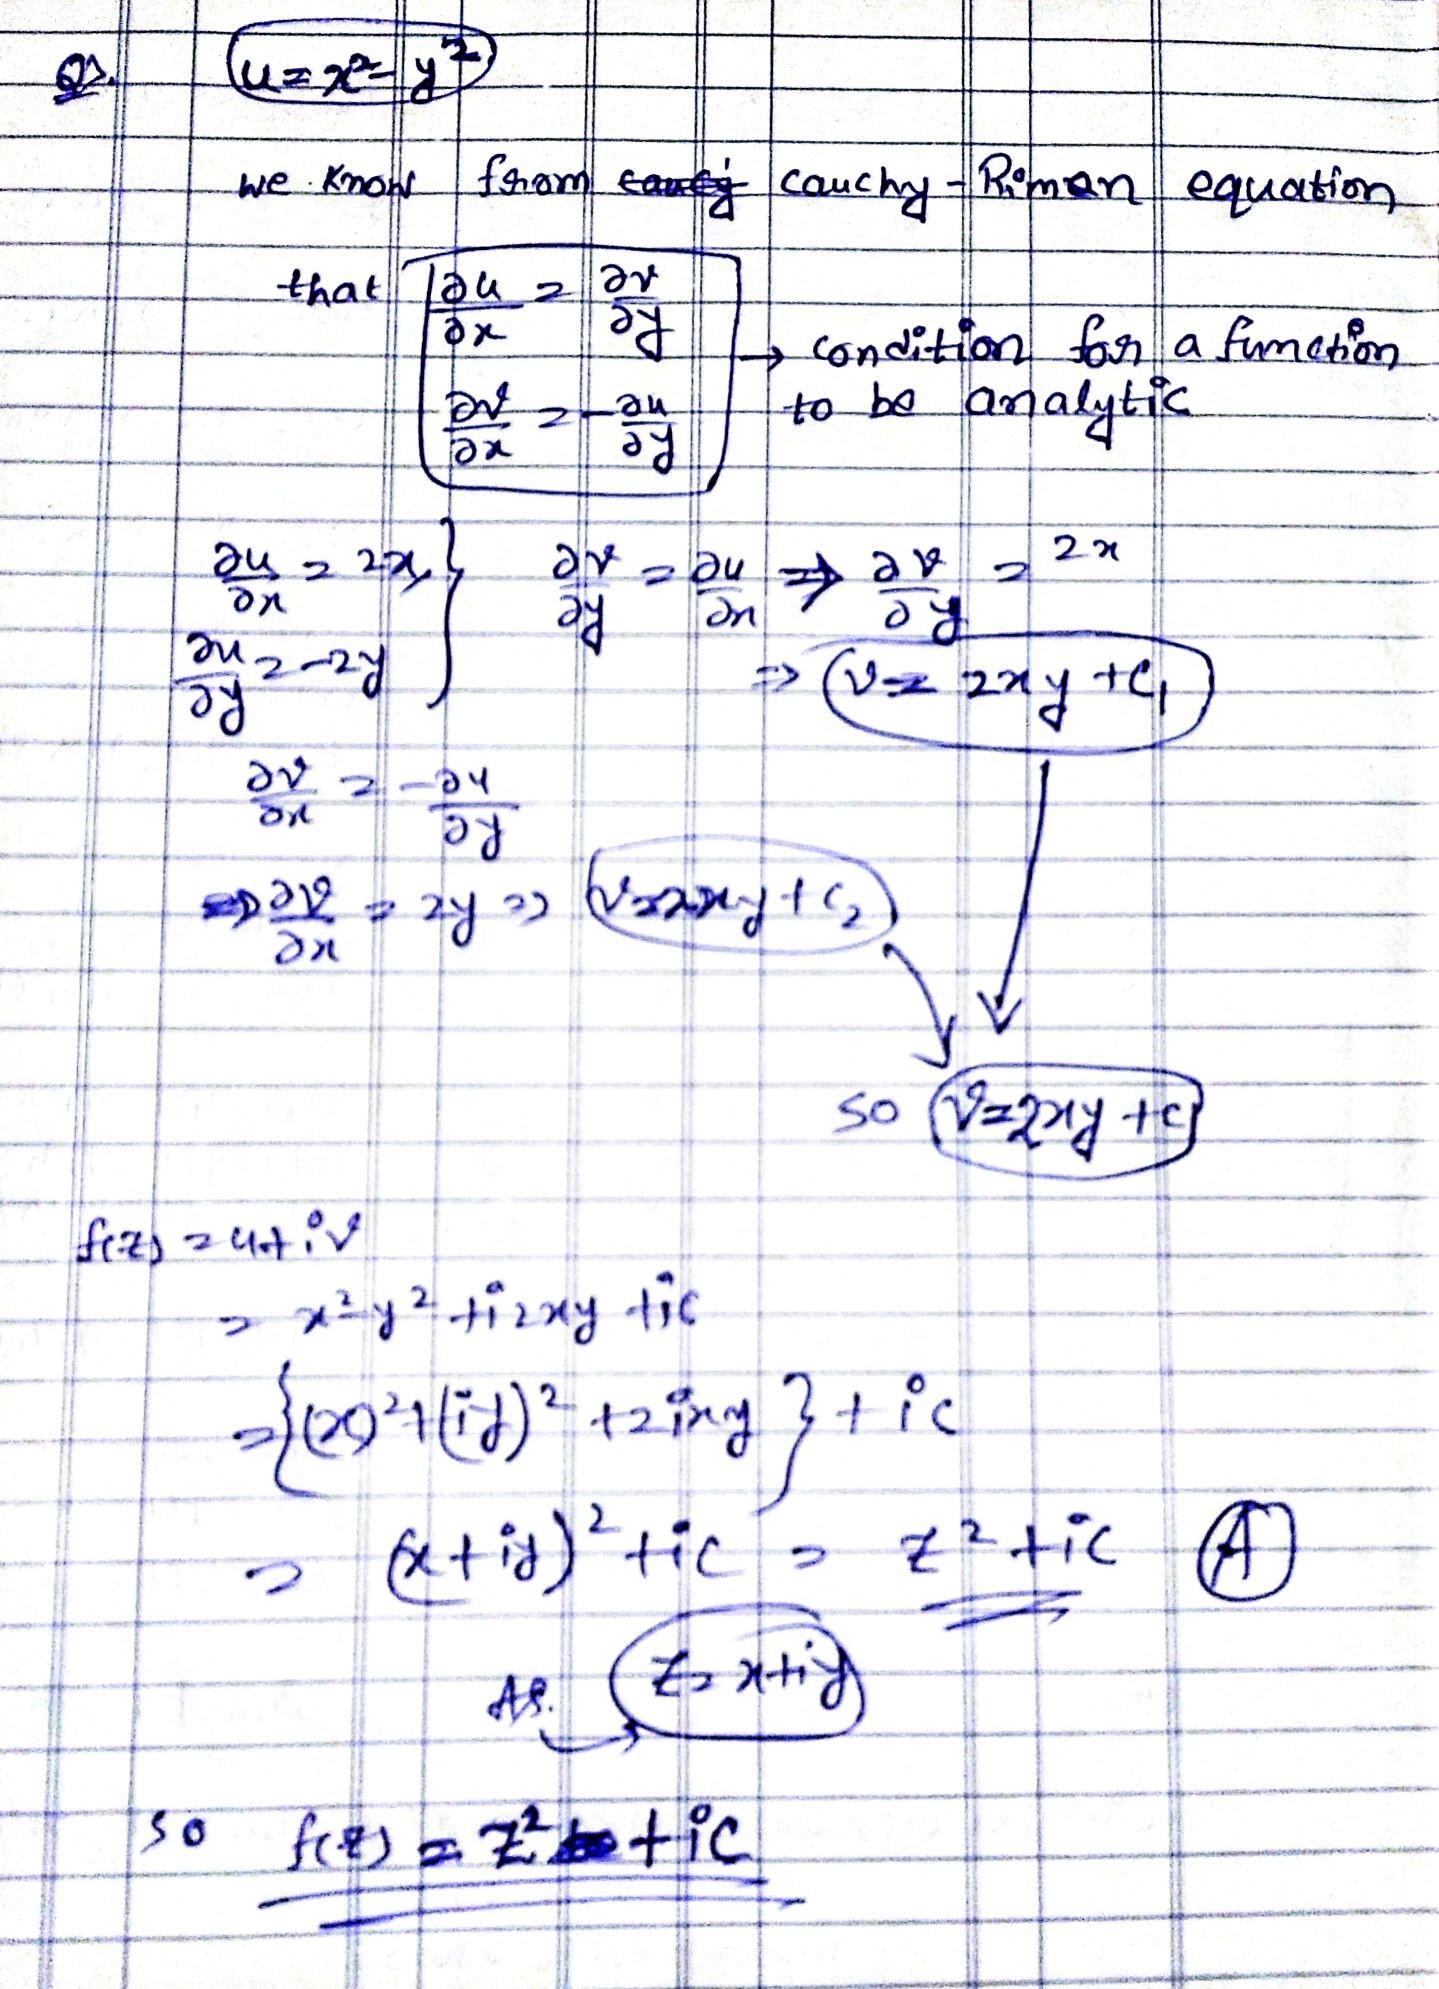 Q>. u = x² - y²
we know from cauchy - Riman equation
that ∂u/∂x = ∂v/∂y
∂v/∂x = -∂u/∂y → condition for a function
to be analytic
∂u/∂x = 2x, } ∂v/∂y = ∂u/∂x ⇒ ∂v/∂y = 2x
∂u/∂y = -2y ⇒ v = 2xy + c₁
∂v/∂x = -∂u/∂y
⇒ ∂v/∂x = 2y ⇒ v = 2xy + c₂
so v = 2xy + c
f(z) = u + iv
= x² - y² + i2xy + ic
= {(x)² + (iy)² + 2ixy} + ic
= (x + iy)² + ic = z² + ic (A)
As. z = x + iy
so f(z) = z² + ic